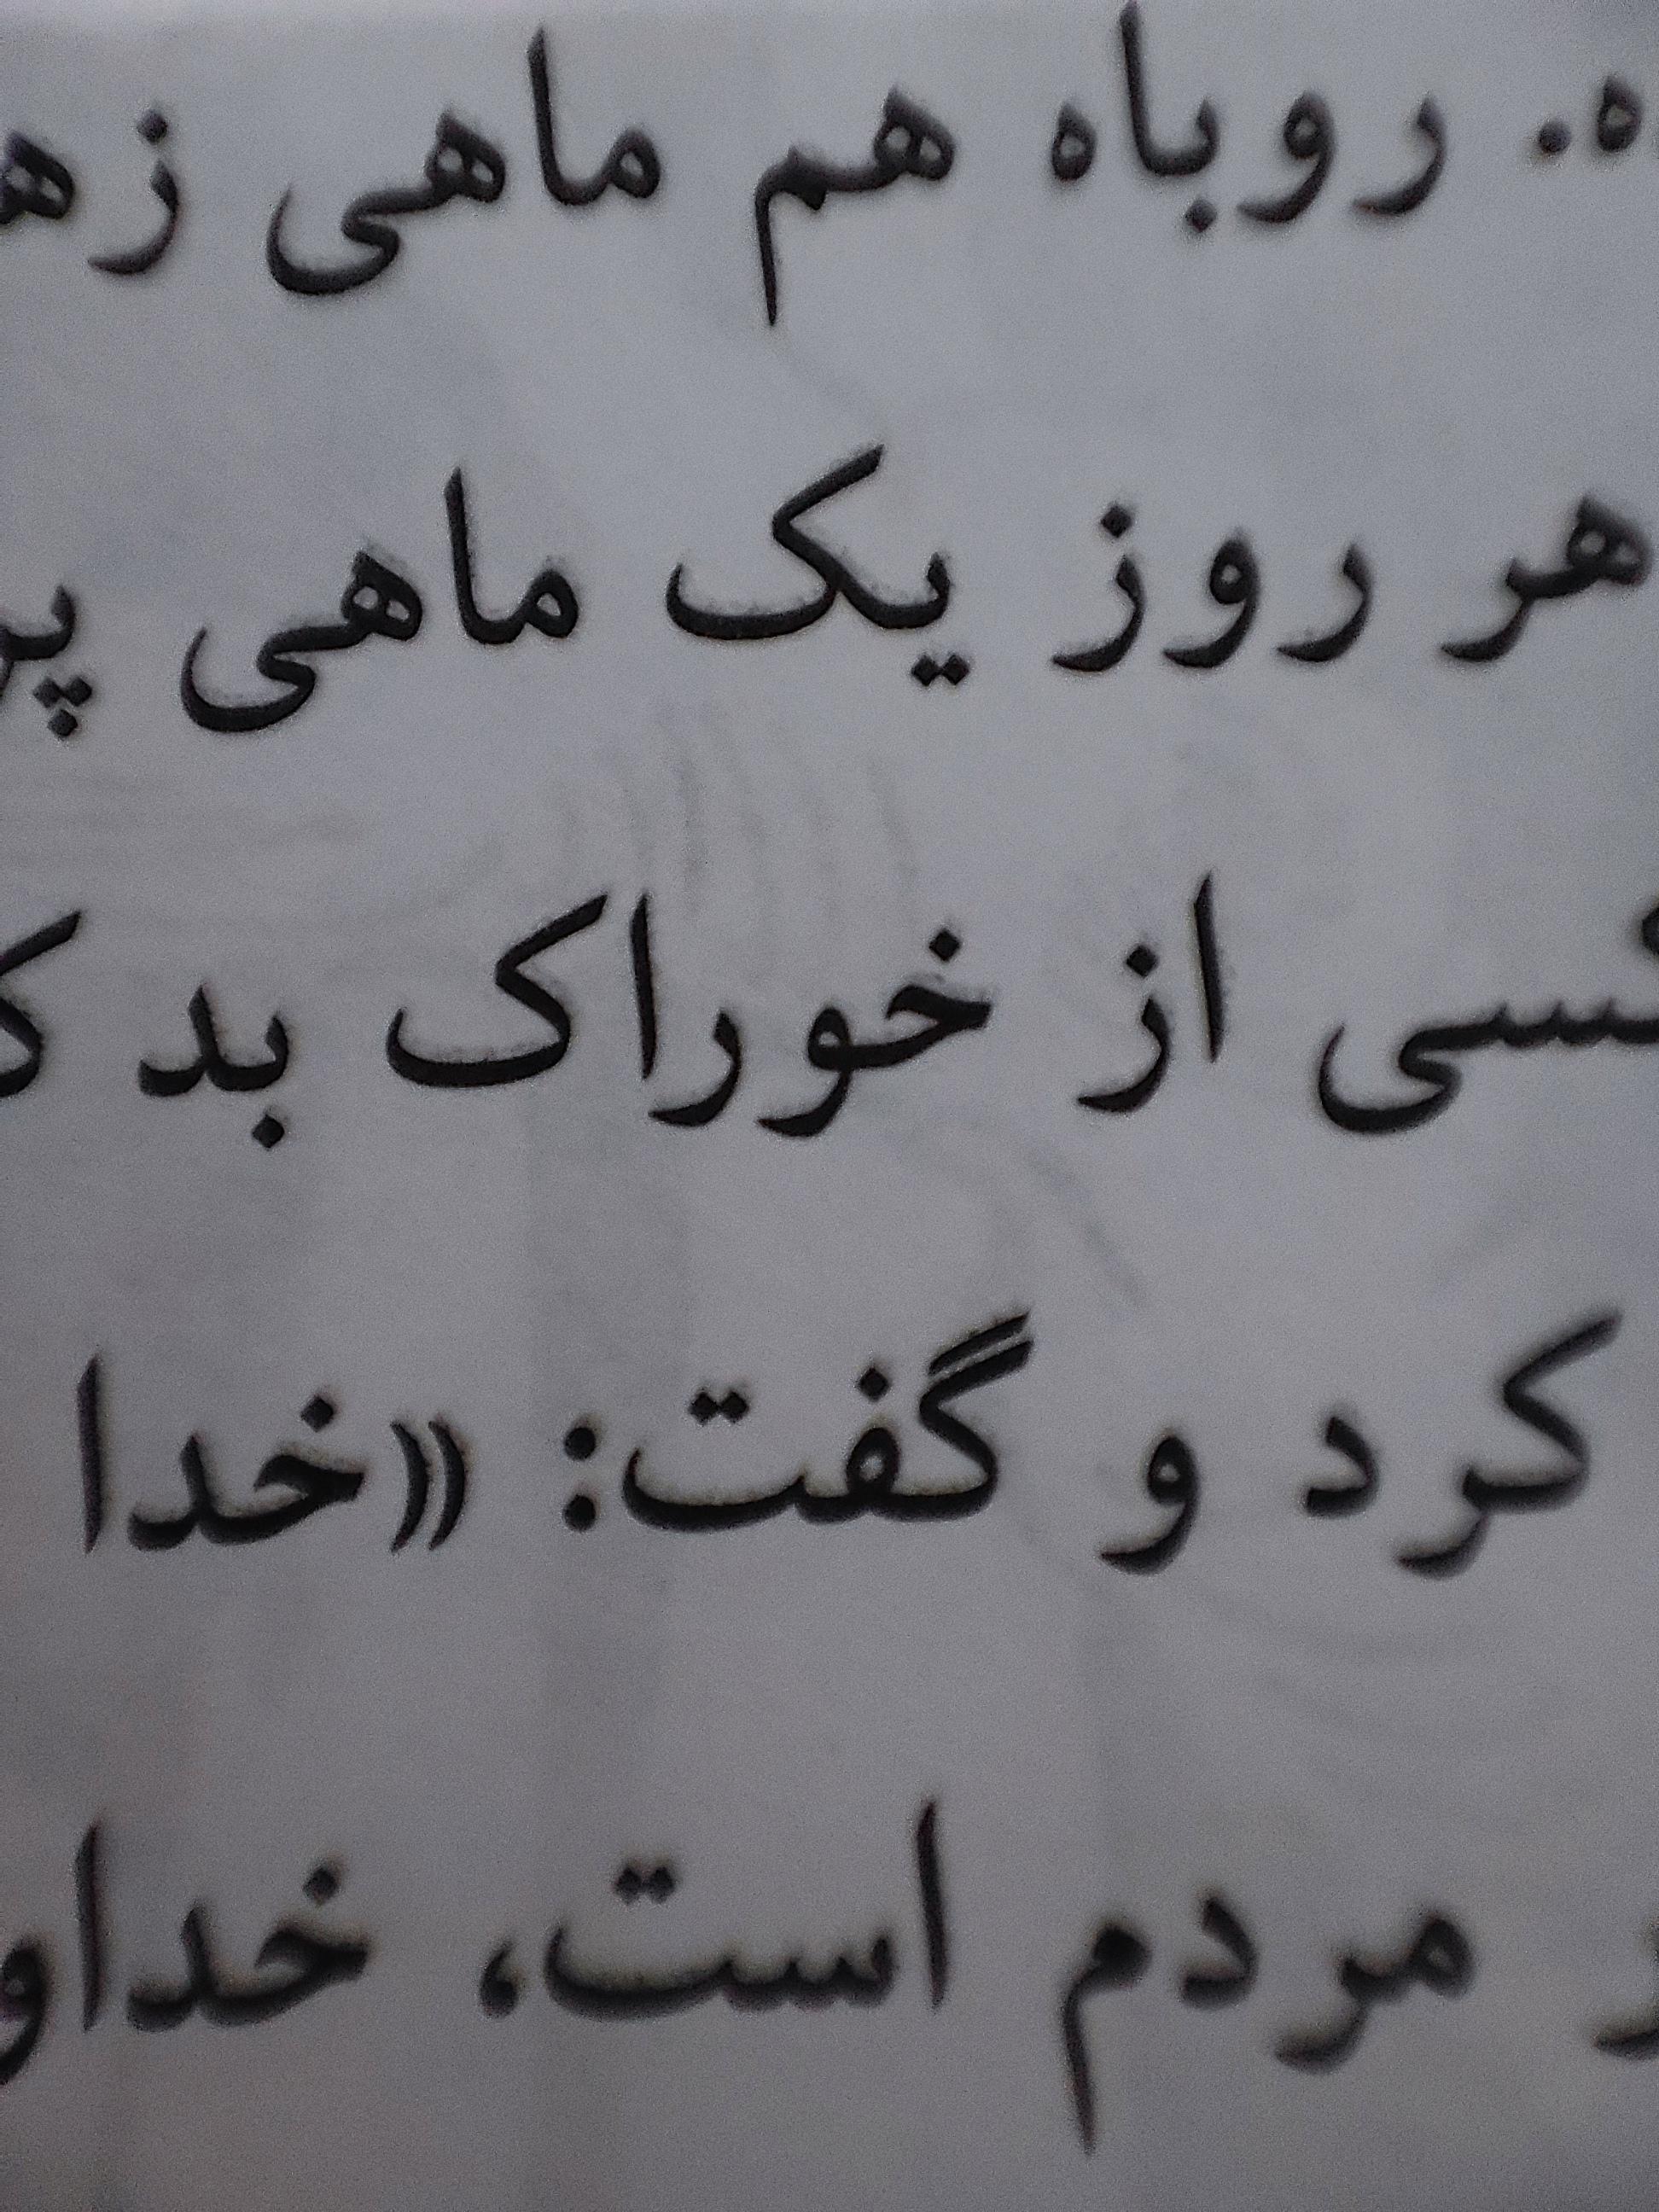 ه. روباه هم ماهی زه
هر روز یک ماهی پر
کسی از خوراک بد ک
کرد و گفت: «خدا
ر مردم است، خداو